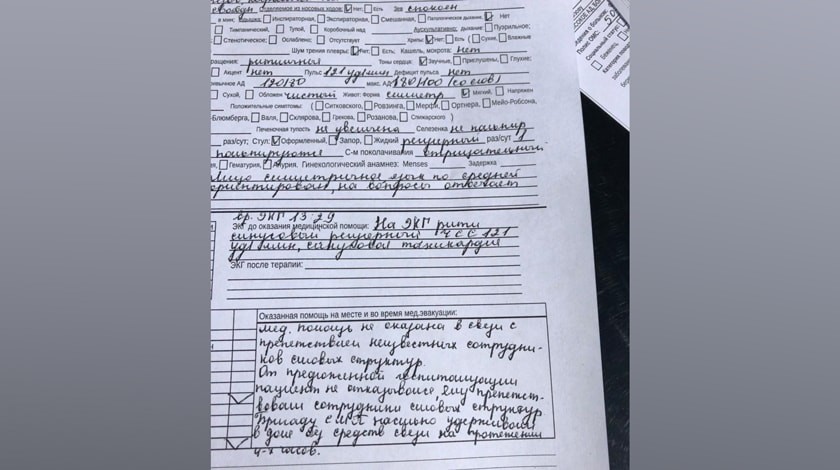 свободн Отделяемое из носовых ходов: Нет; Есть Зев спокоен
в мин; Одышка: Инспираторная, Экспираторная, Смешанная, Патологическое дыхание: Нет
Тимпанический, Тупой, Коробочный над Аускультативно: дыхание: Пуэрильное;
Стенотическое; Ослаблено; Отсутствует Хрипы: Нет; Есть ( Сухие, Влажные
Шум трения плевры: Нет; Есть; Кашель, мокрота: нет
ращения: ритмичный Тоны сердца: Звучные, Приглушены, Глухие;
Акцент нет Пульс 121 уд/мин Дефицит пульса нет
ивычное АД 120/80 макс. АД 180/100 (со слов)
Сухой, Обложен чистый Живот: Форма симметр Мягкий, Напряжен
Положительные симптомы: ( Ситковского, Ровзинга, Мерфи, Ортнера, Мейо-Робсона,
-Блюмберга, Валя, Склярова, Грекова, Розанова, Спижарского)
Печеночная тупость не увеличена Селезенка не пальпир
раз/сут; Стул: Оформленный, Запор, Жидкий регулярный раз/сут; 1
пальпируются С-м поколачивания отрицательный
я, Гематурия, Анурия. Гинекологический анамнез: Menses Задержка
Лицо симметричное язык по средней
ориентирован, на вопросы отвечает
вр. ЭКГ 13:29
ЭКГ до оказания медицинской помощи: На ЭКГ ритм
синусовый регулярный ЧСС 121
уд/мин, синусовая тахикардия
ЭКГ после терапии:
Оказанная помощь на месте и во время мед.эвакуации:
мед. помощь не оказана в связи с
препятствием неизвестных сотрудни-
ков силовых структур.
От предложенной госпитализации
пациент не отказывался, ему препятст-
вовали сотрудники силовых структур
Бригаду СМП насильно удерживали
в доме без средств связи на протяжении
4-х часов.